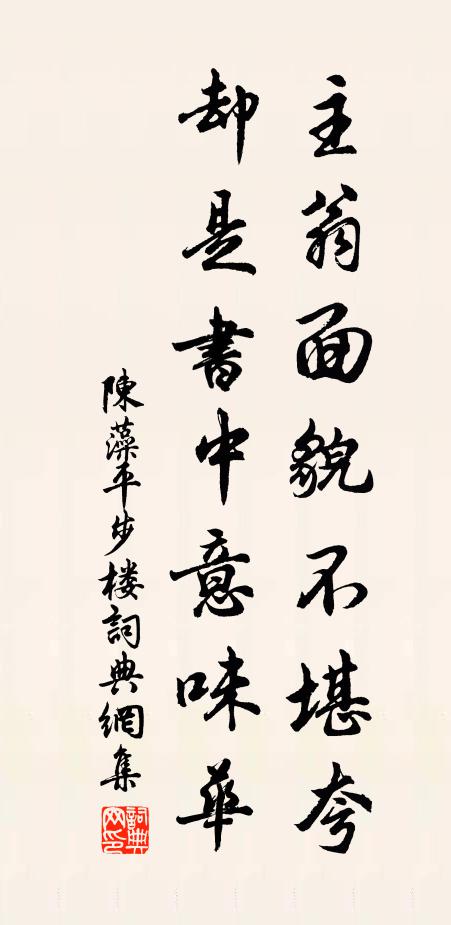 主翁面貌不堪夸
却是書中意味華
陳藻平步楼詞典網集
詞典网印